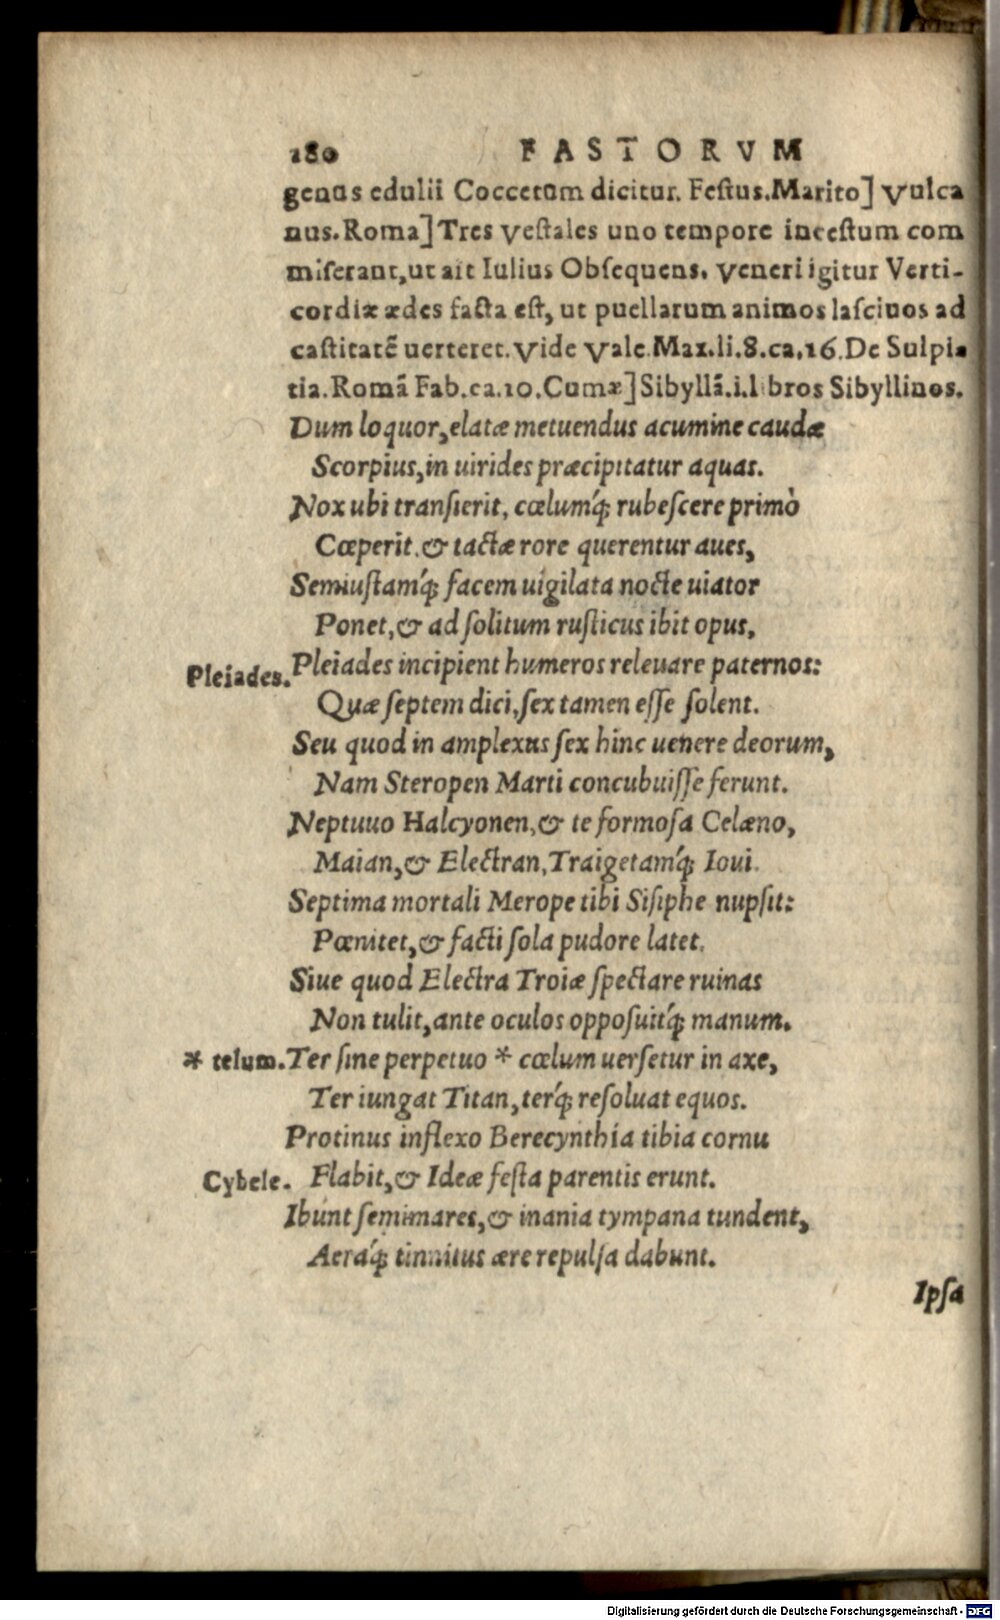 180 FASTORVM
genus edulii Coccetum dicitur. Festus. Marito] Vulca
nus. Roma] Tres Vestales uno tempore incestum com
miserant, ut ait Iulius Obsequens. Veneri igitur Verti-
cordiæ ædes facta est, ut puellarum animos lasciuos ad
castitatē uerteret. Vide Vale. Max. li. 8. ca. 16. De Sulpi-
tia. Romā Fab. ca. 10. Cumæ] Sibyllā. i. libros Sibyllinos.
Dum loquor, elatæ metuendus acumine caudæ
Scorpius, in uirides præcipitatur aquas.
Nox ubi transierit, cœlumq́; rubescere primò
Cœperit, & tactæ rore querentur aues,
Semiustamq́; facem uigilata nocte uiator
Ponet, & ad solitum rusticus ibit opus,
Pleiades. Pleiades incipient humeros releuare paternos:
Quæ septem dici, sex tamen esse solent.
Seu quod in amplexus sex hinc uenere deorum,
Nam Steropen Marti concubuisse ferunt.
Neptuuo Halcyonen, & te formosa Celæno,
Maian, & Electran, Traigetamq́; Ioui.
Septima mortali Merope tibi Sisiphe nupsit:
Pœnitet, & facti sola pudore latet.
Siue quod Electra Troiæ spectare ruinas
Non tulit, ante oculos opposuitq́; manum.
* telum. Ter sine perpetuo * cœlum uersetur in axe,
Ter iungat Titan, terq́; resoluat equos.
Protinus inflexo Berecynthia tibia cornu
Cybele. Flabit, & Ideæ festa parentis erunt.
Ibunt semimares, & inania tympana tundent,
Aeraq́; tinnitus ære repulsa dabunt.
Ipsa
Digitalisierung gefördert durch die Deutsche Forschungsgemeinschaft - DFG